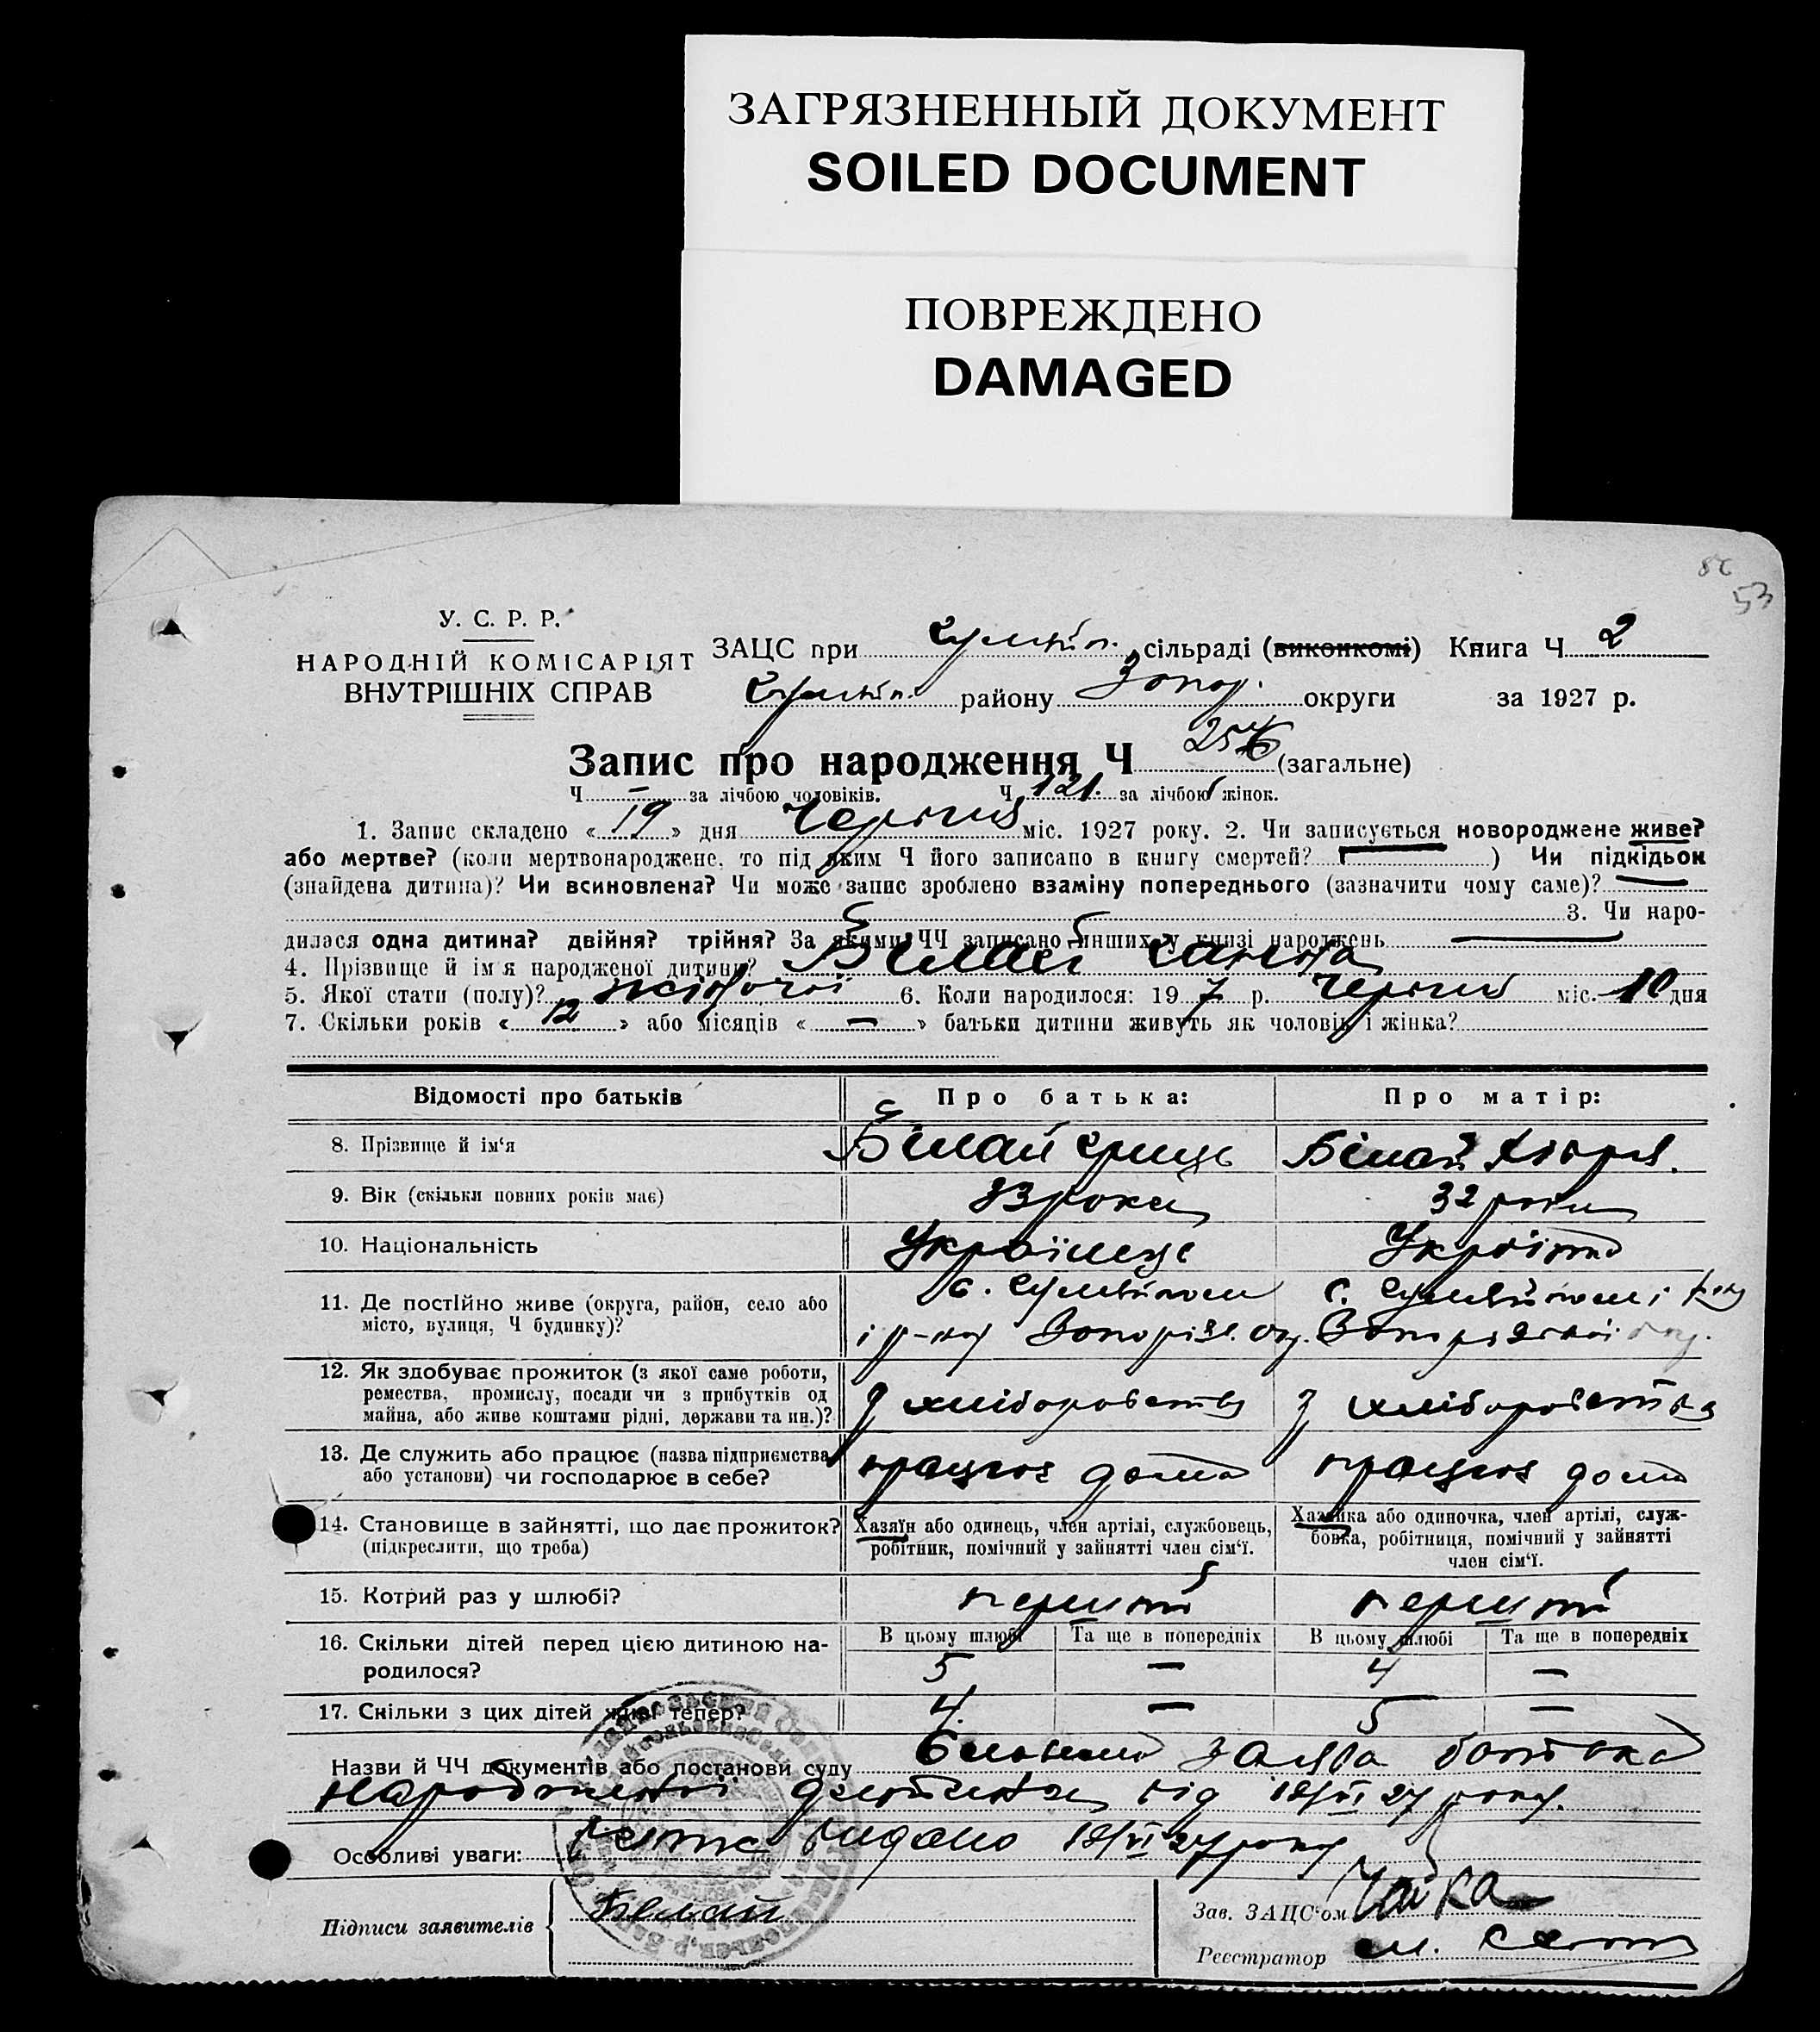 ЗАГРЯЗНЕННЫЙ ДОКУМЕНТ
SOILED DOCUMENT
ПОВРЕЖДЕНО
DAMAGED
53
У. С. Р. Р.
НАРОДНІЙ КОМІСАРІЯТ
ВНУТРІШНІХ СПРАВ
ЗАЦС при сільраді (виконкомі) Книга Ч 2
району Запор. округи за 1927 р.
Запис про народження Ч (загальне)
Ч. – за лічбою чоловіків. Ч 121. за лічбою жінок.
1. Запис складено « 19 » дня Червня міс. 1927 року. 2. Чи записується новороджене живе?
або мертве? (коли мертвонароджене, то під яким Ч його записано в книгу смертей? ) Чи підкідьок
(знайдена дитина)? Чи всиновлена? Чи може запис зроблено взаміну попереднього (зазначити чому саме)? —
3. Чи наро-
дилася одна дитина? двійня? трійня? За якими ЧЧ записано инших у книзі народжень —
4. Прізвище й ім'я народженої дитини? Білай
5. Якої стати (полу)? жіночої 6. Коли народилося: 19 7 р. Червня міс. 10 дня
7. Скільки років « 12 » або місяців « — » батьки дитини живуть як чоловік і жінка?
Відомості про батьків Про батька: Про матір:
8. Прізвище й ім'я Білай Грицько Білай
9. Вік (скільки повних років має) 33 роки 32 роки
10. Національність Українець Українка
11. Де постійно живе (округа, район, село або с. с.
місто, вулиця, Ч будинку)? р-ну Запорізь. окр. Запорізської окр.
12. Як здобуває прожиток (з якої саме роботи,
ремества, промислу, посади чи з прибутків од З хліборобства З хліборобства
майна, або живе коштами рідні, держави та ин.)?
13. Де служить або працює (назва підприємства
або установи) чи господарює в себе? працює дома працює дома
14. Становище в зайнятті, що дає прожиток? Хазяїн або одинець, член артілі, службовець, Хазяйка або одиночка, член артілі, служ-
(підкреслити, що треба) робітник, помічний у зайнятті член сім'ї. бовка, робітниця, помічний у зайнятті
член сім'ї.
15. Котрий раз у шлюбі? перший перший
16. Скільки дітей перед цією дитиною на- В цьому шлюбі Та ще в попередніх В цьому шлюбі Та ще в попередніх
родилося? 5 — 4 —
17. Скільки з цих дітей живі тепер? 4. — 5 —
Назви й ЧЧ документів або постанови суду Словесна заява батька
народженої дитини від 19/VI 27 року.
Особливі уваги: видано 19/VI 27 року
Підписи заявителів Білай
Зав. ЗАЦС'ом Чайка
Реєстратор